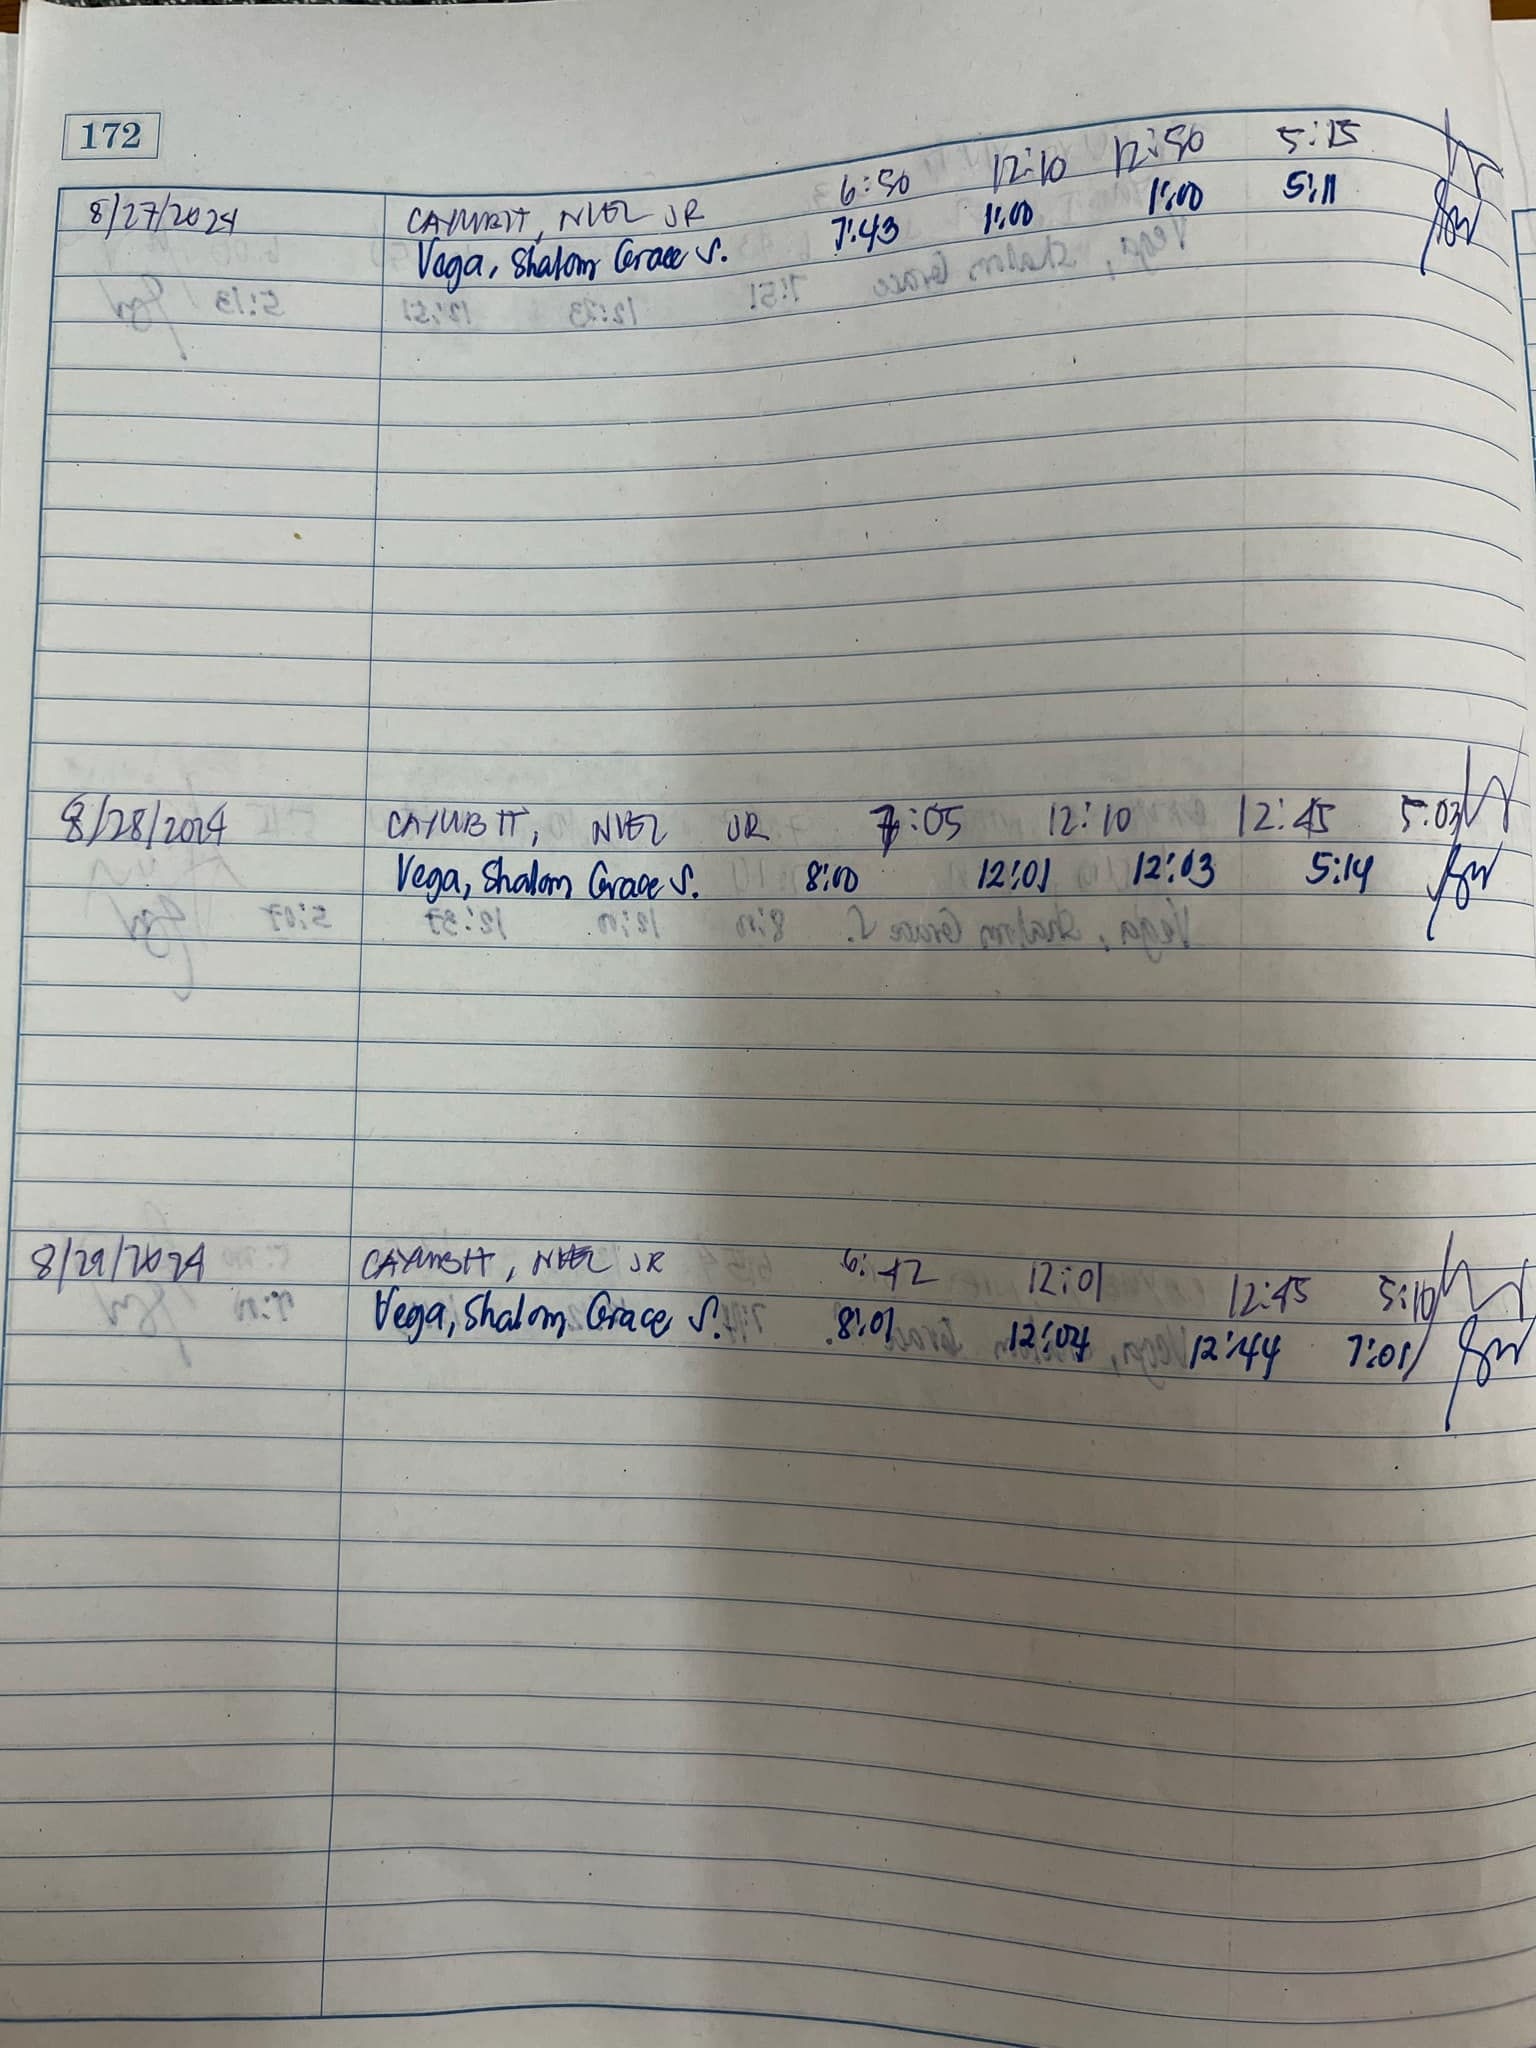 172
8/27/2024 CAYUBIT, NIEL JR 6:50 12:10 12:50 5:15
Vega, Shalom Grace S. 7:43 1:00 1:00 5:11
8/28/2024 CAYUBIT, NIEL JR 7:05 12:10 12:45 5:03
Vega, Shalom Grace S. 8:00 12:01 12:03 5:14
8/29/2024 CAYUBIT, NIEL JR 6:42 12:01 12:45 5:10
Vega, Shalom Grace S. 8:01 12:04 12:44 7:01